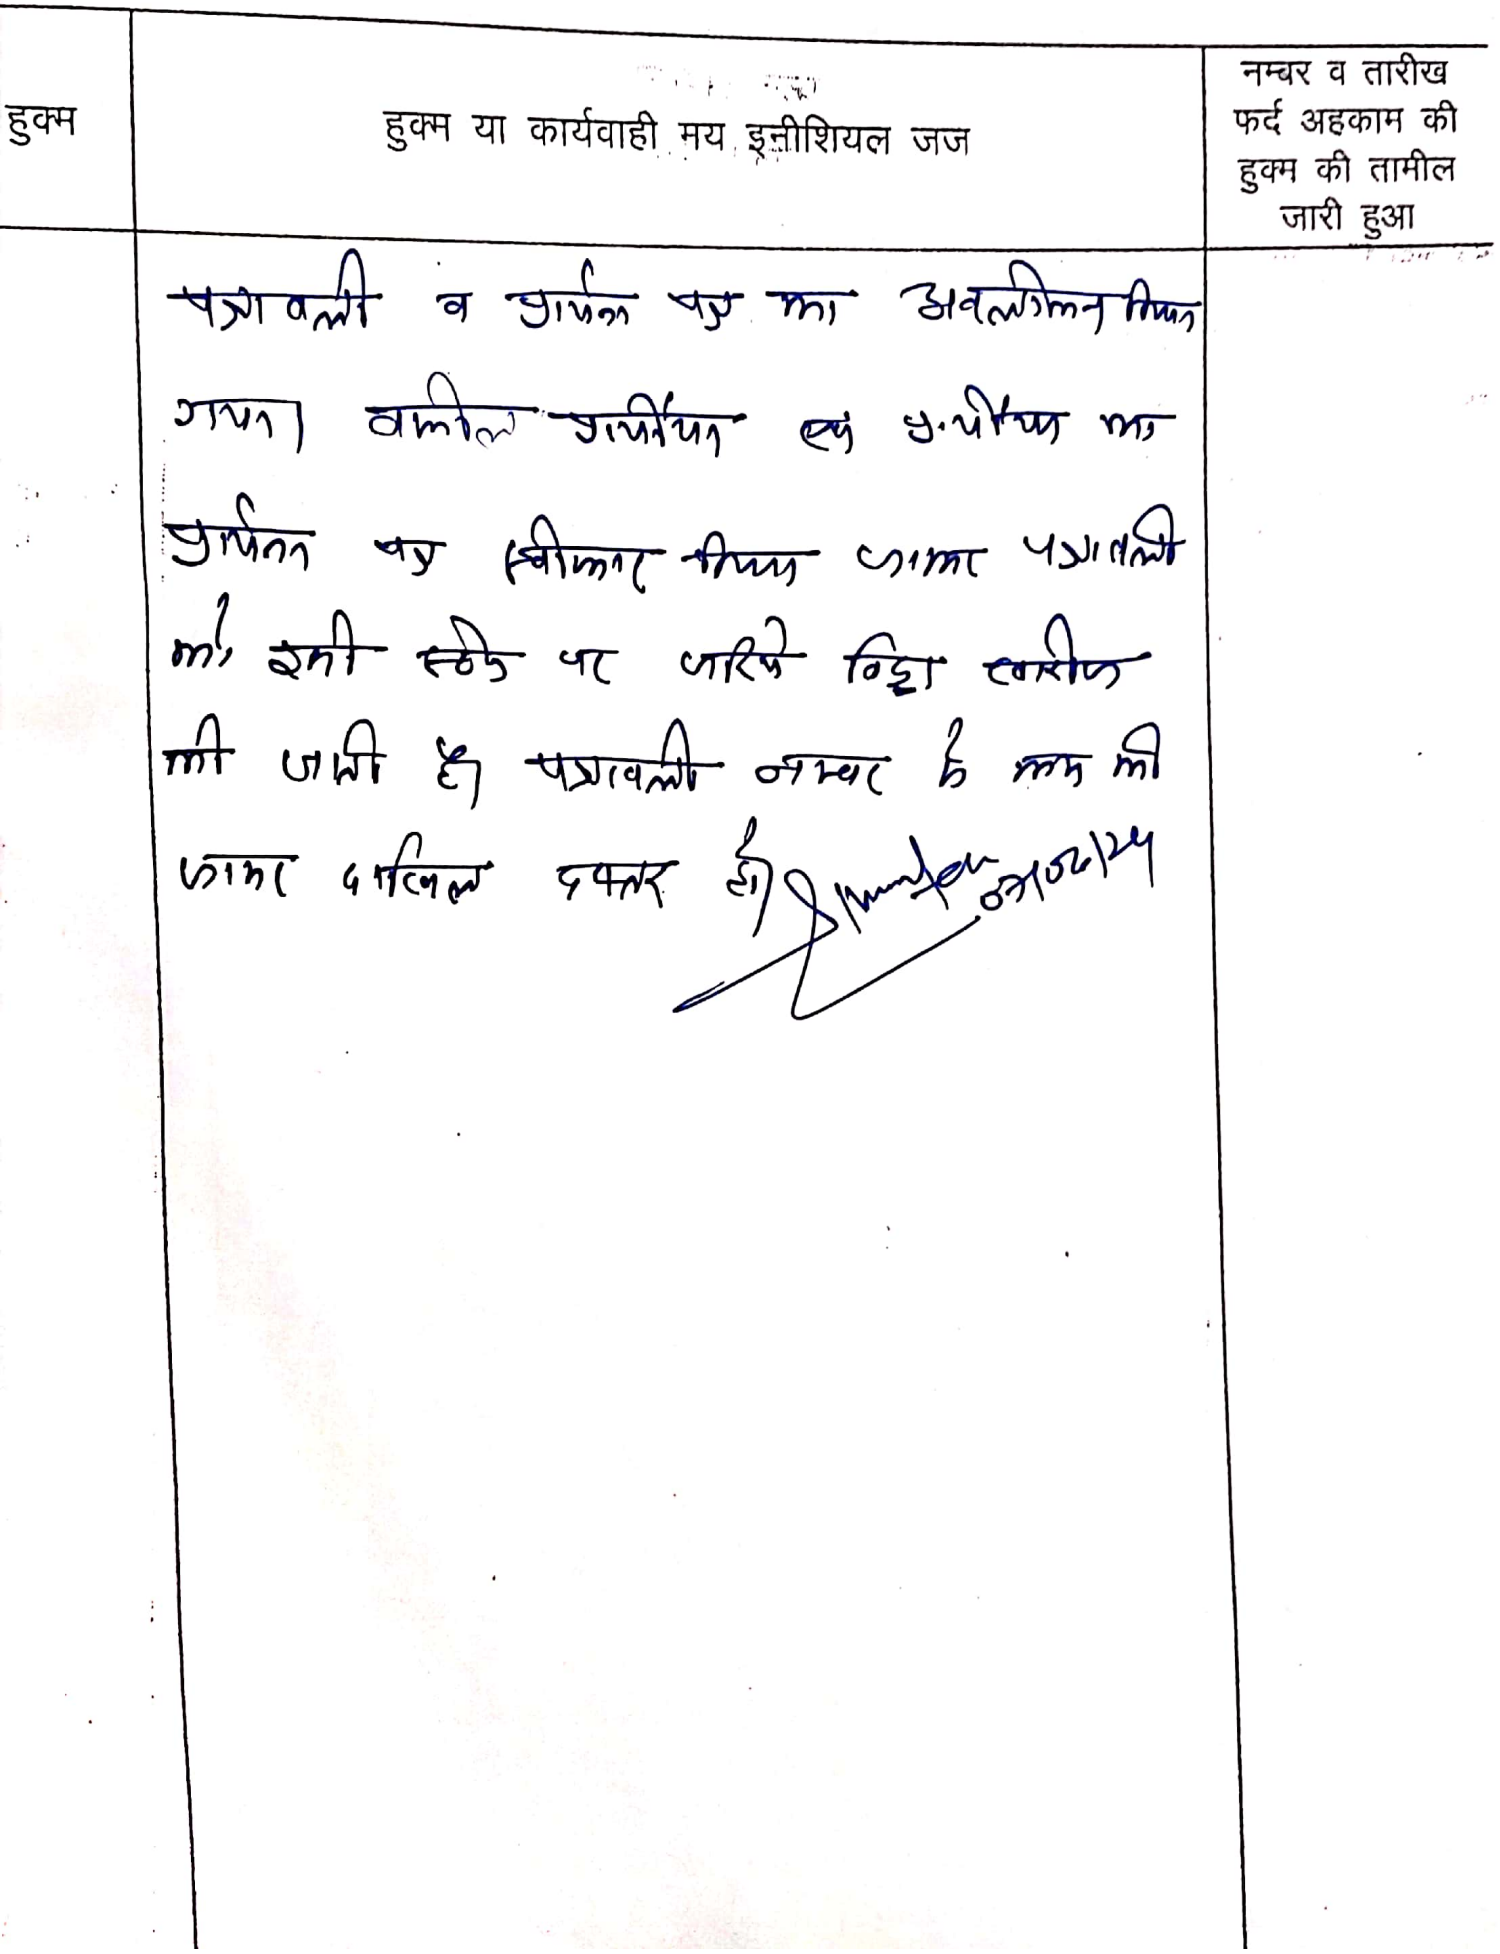 हुक्म
हुक्म या कार्यवाही मय इनीशियल जज
नम्बर व तारीख
फर्द अहकाम की
हुक्म की तामील
जारी हुआ
पत्रावली व प्रार्थना पत्र का अवलोकन किया
गया। वकील प्रार्थीया एवं प्रार्थीया का
प्रार्थना पत्र स्वीकार किया जाकर पत्रावली
को इसी स्टेज पर जरिये विड्रा खारीज
की जाती है। पत्रावली नम्बर से कम की
जाकर दाखिल दफ्तर हो।